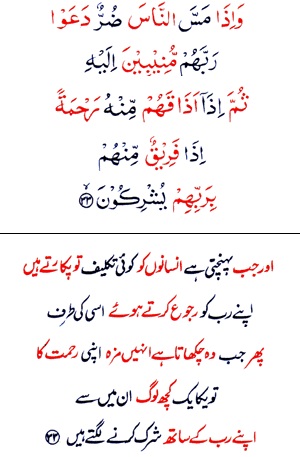 وَاِذَا مَسَّ النَّاسَ ضُرٌّ دَعَوْا
رَبَّهُمْ مُّنِيْبِيْنَ اِلَيْهِ
ثُمَّ اِذَاۤ اَذَاقَهُمْ مِّنْهُ رَحْمَةً
اِذَا فَرِيْقٌ مِّنْهُمْ
بِرَبِّهِمْ يُشْرِكُوْنَ ۙ﴿۳۳﴾
اور جب پہنچتی ہے انسانوں کو کوئی تکلیف تو پکارتے ہیں
اپنے رب کو رجوع کرتے ہوئے اسی کی طرف
پھر جب وہ چکھاتا ہے انہیں مزہ اپنی رحمت کا
تو یکایک کچھ لوگ ان میں سے
اپنے رب کے ساتھ شرک کرنے لگتے ہیں ﴿۳۳﴾